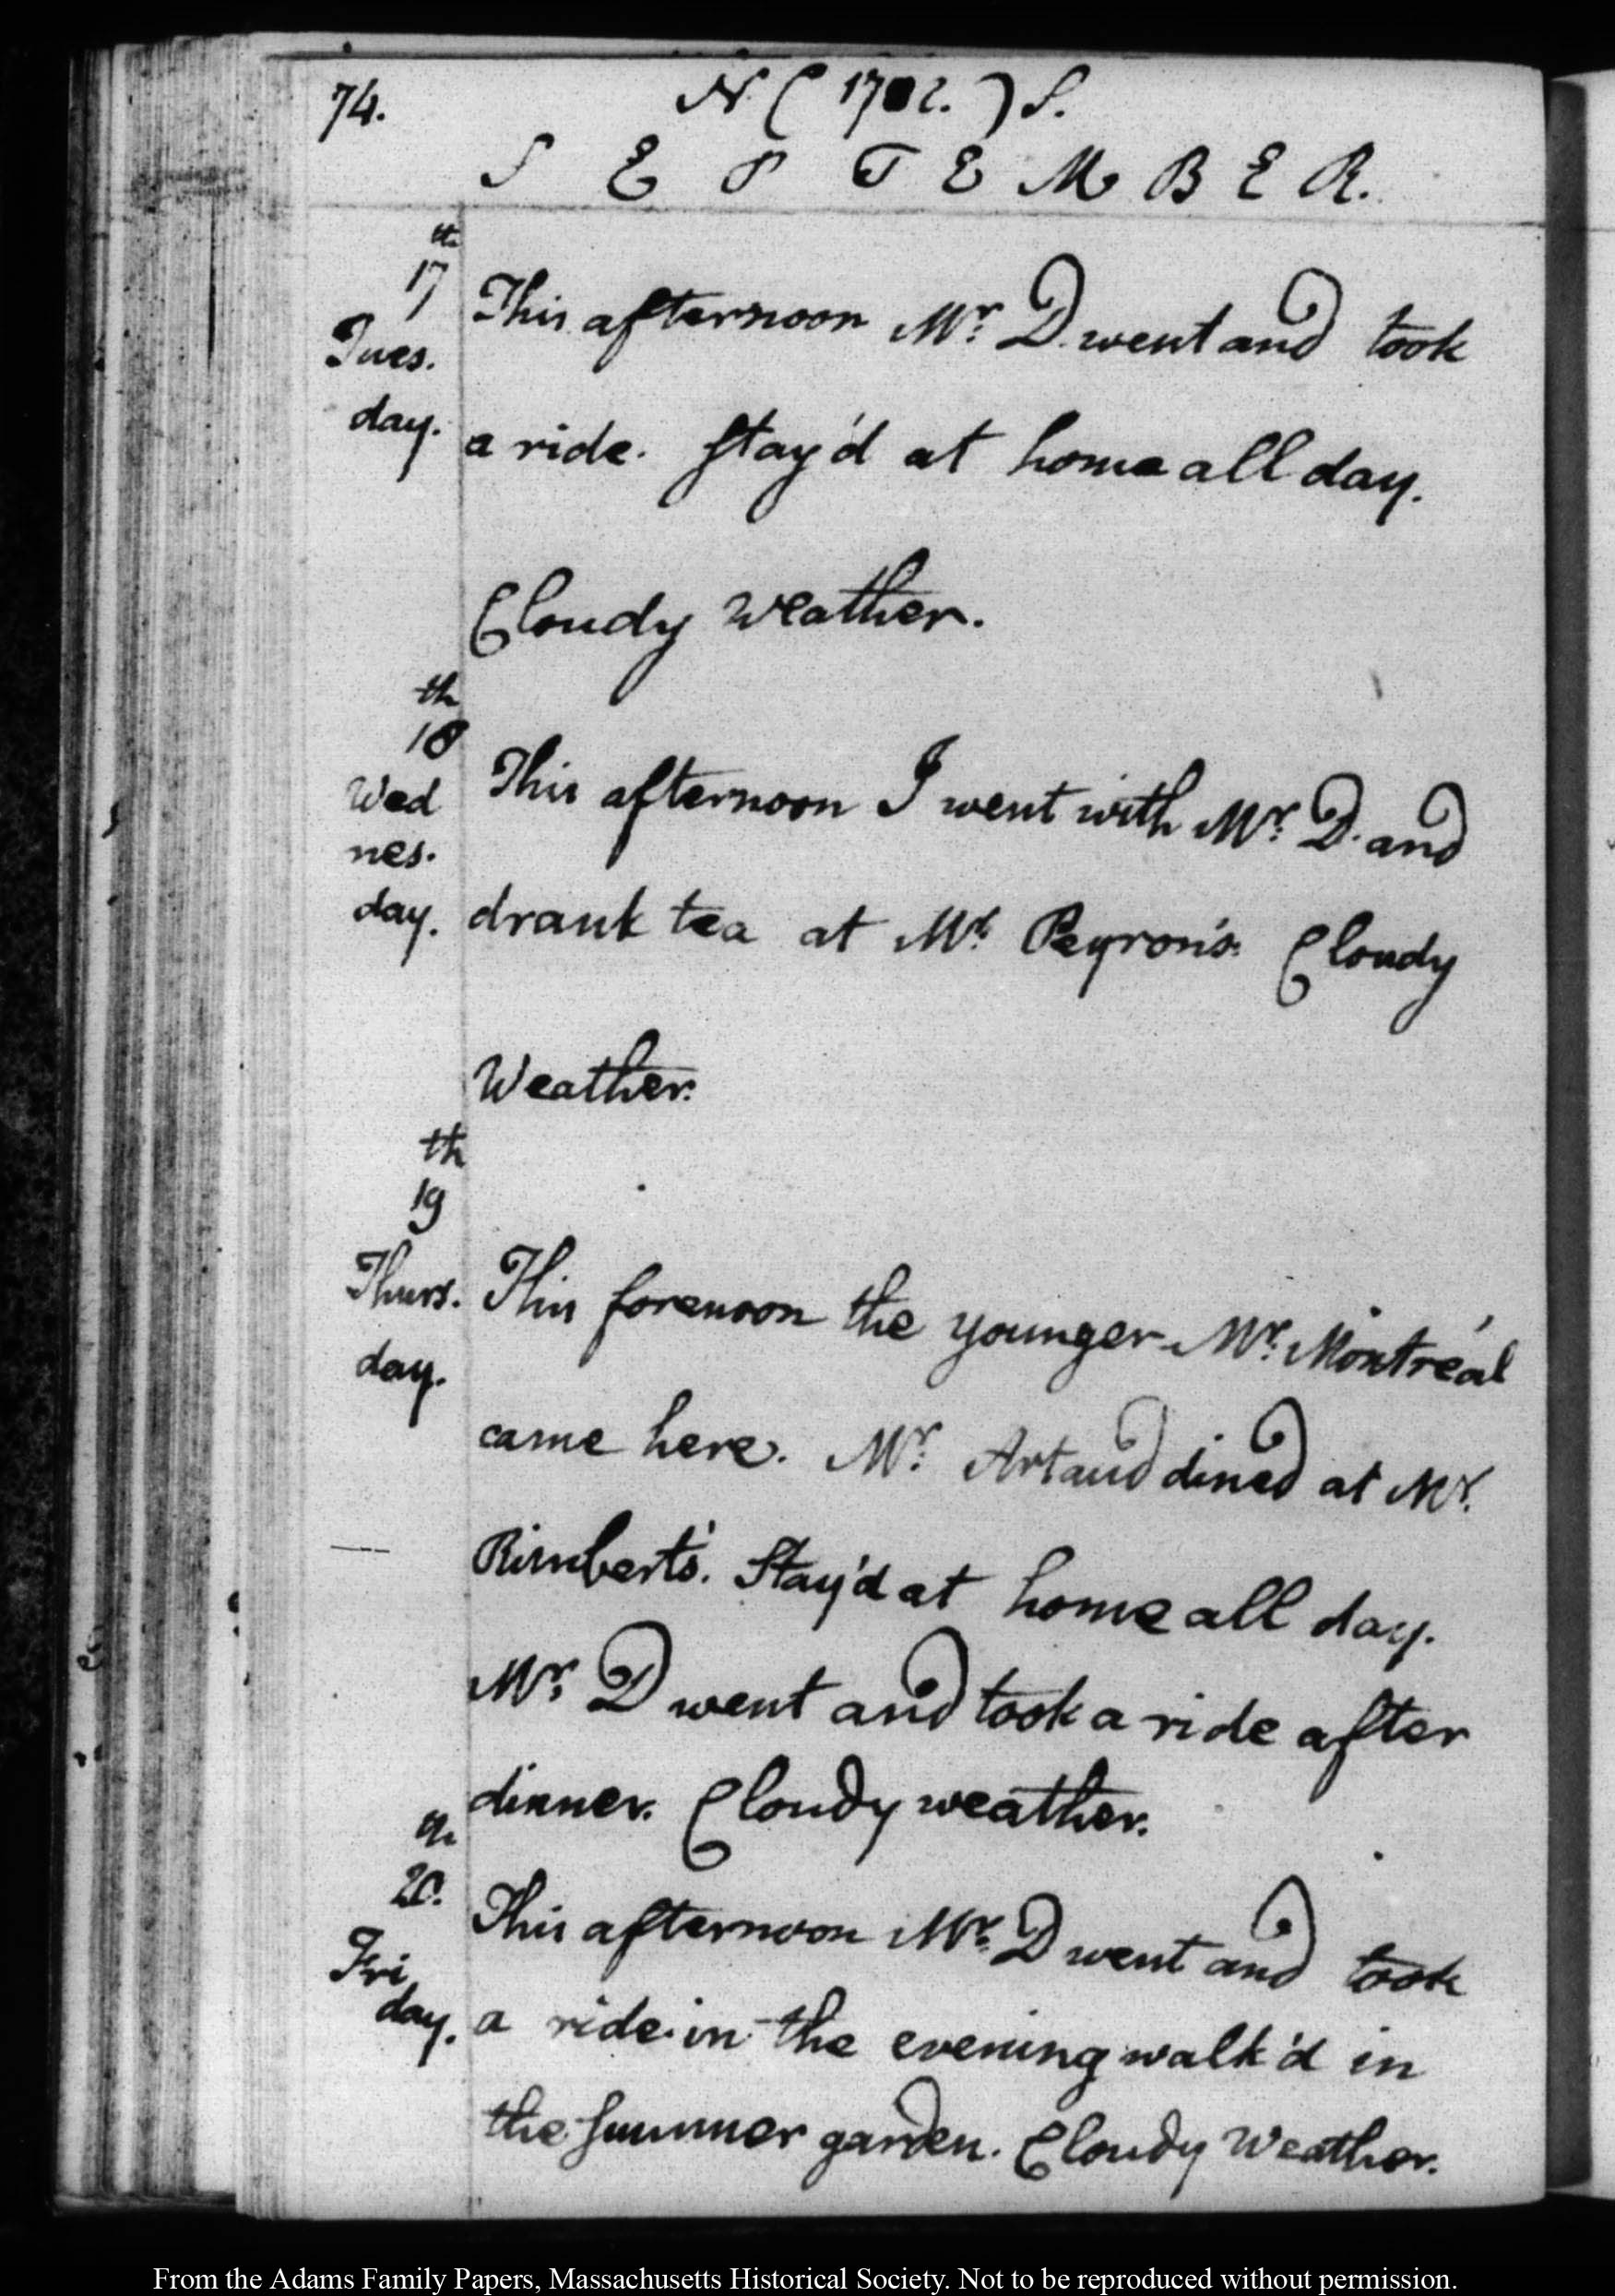 74.
N. (1782.) S.
SEPTEMBER.
th
17 This afternoon Mr. D. went and took
Tues.
day. a ride. Stay'd at home all day.
Cloudy weather.
th
18
Wed This afternoon I went with Mr. D. and
nes.
day. drank tea at Mr. Peyron's. Cloudy
Weather.
th
19
Thurs. This forenoon the younger Mr. Montréal
day.
came here. Mr. Artaud dined at Mr.
Rimbert's. Stay'd at home all day.
Mr. D went and took a ride after
dinner. Cloudy weather.
th
20. This afternoon Mr. D went and took
Fri
day. a ride. in the evening walk'd in
the Summer garden. Cloudy Weather.
From the Adams Family Papers, Massachusetts Historical Society. Not to be reproduced without permission.